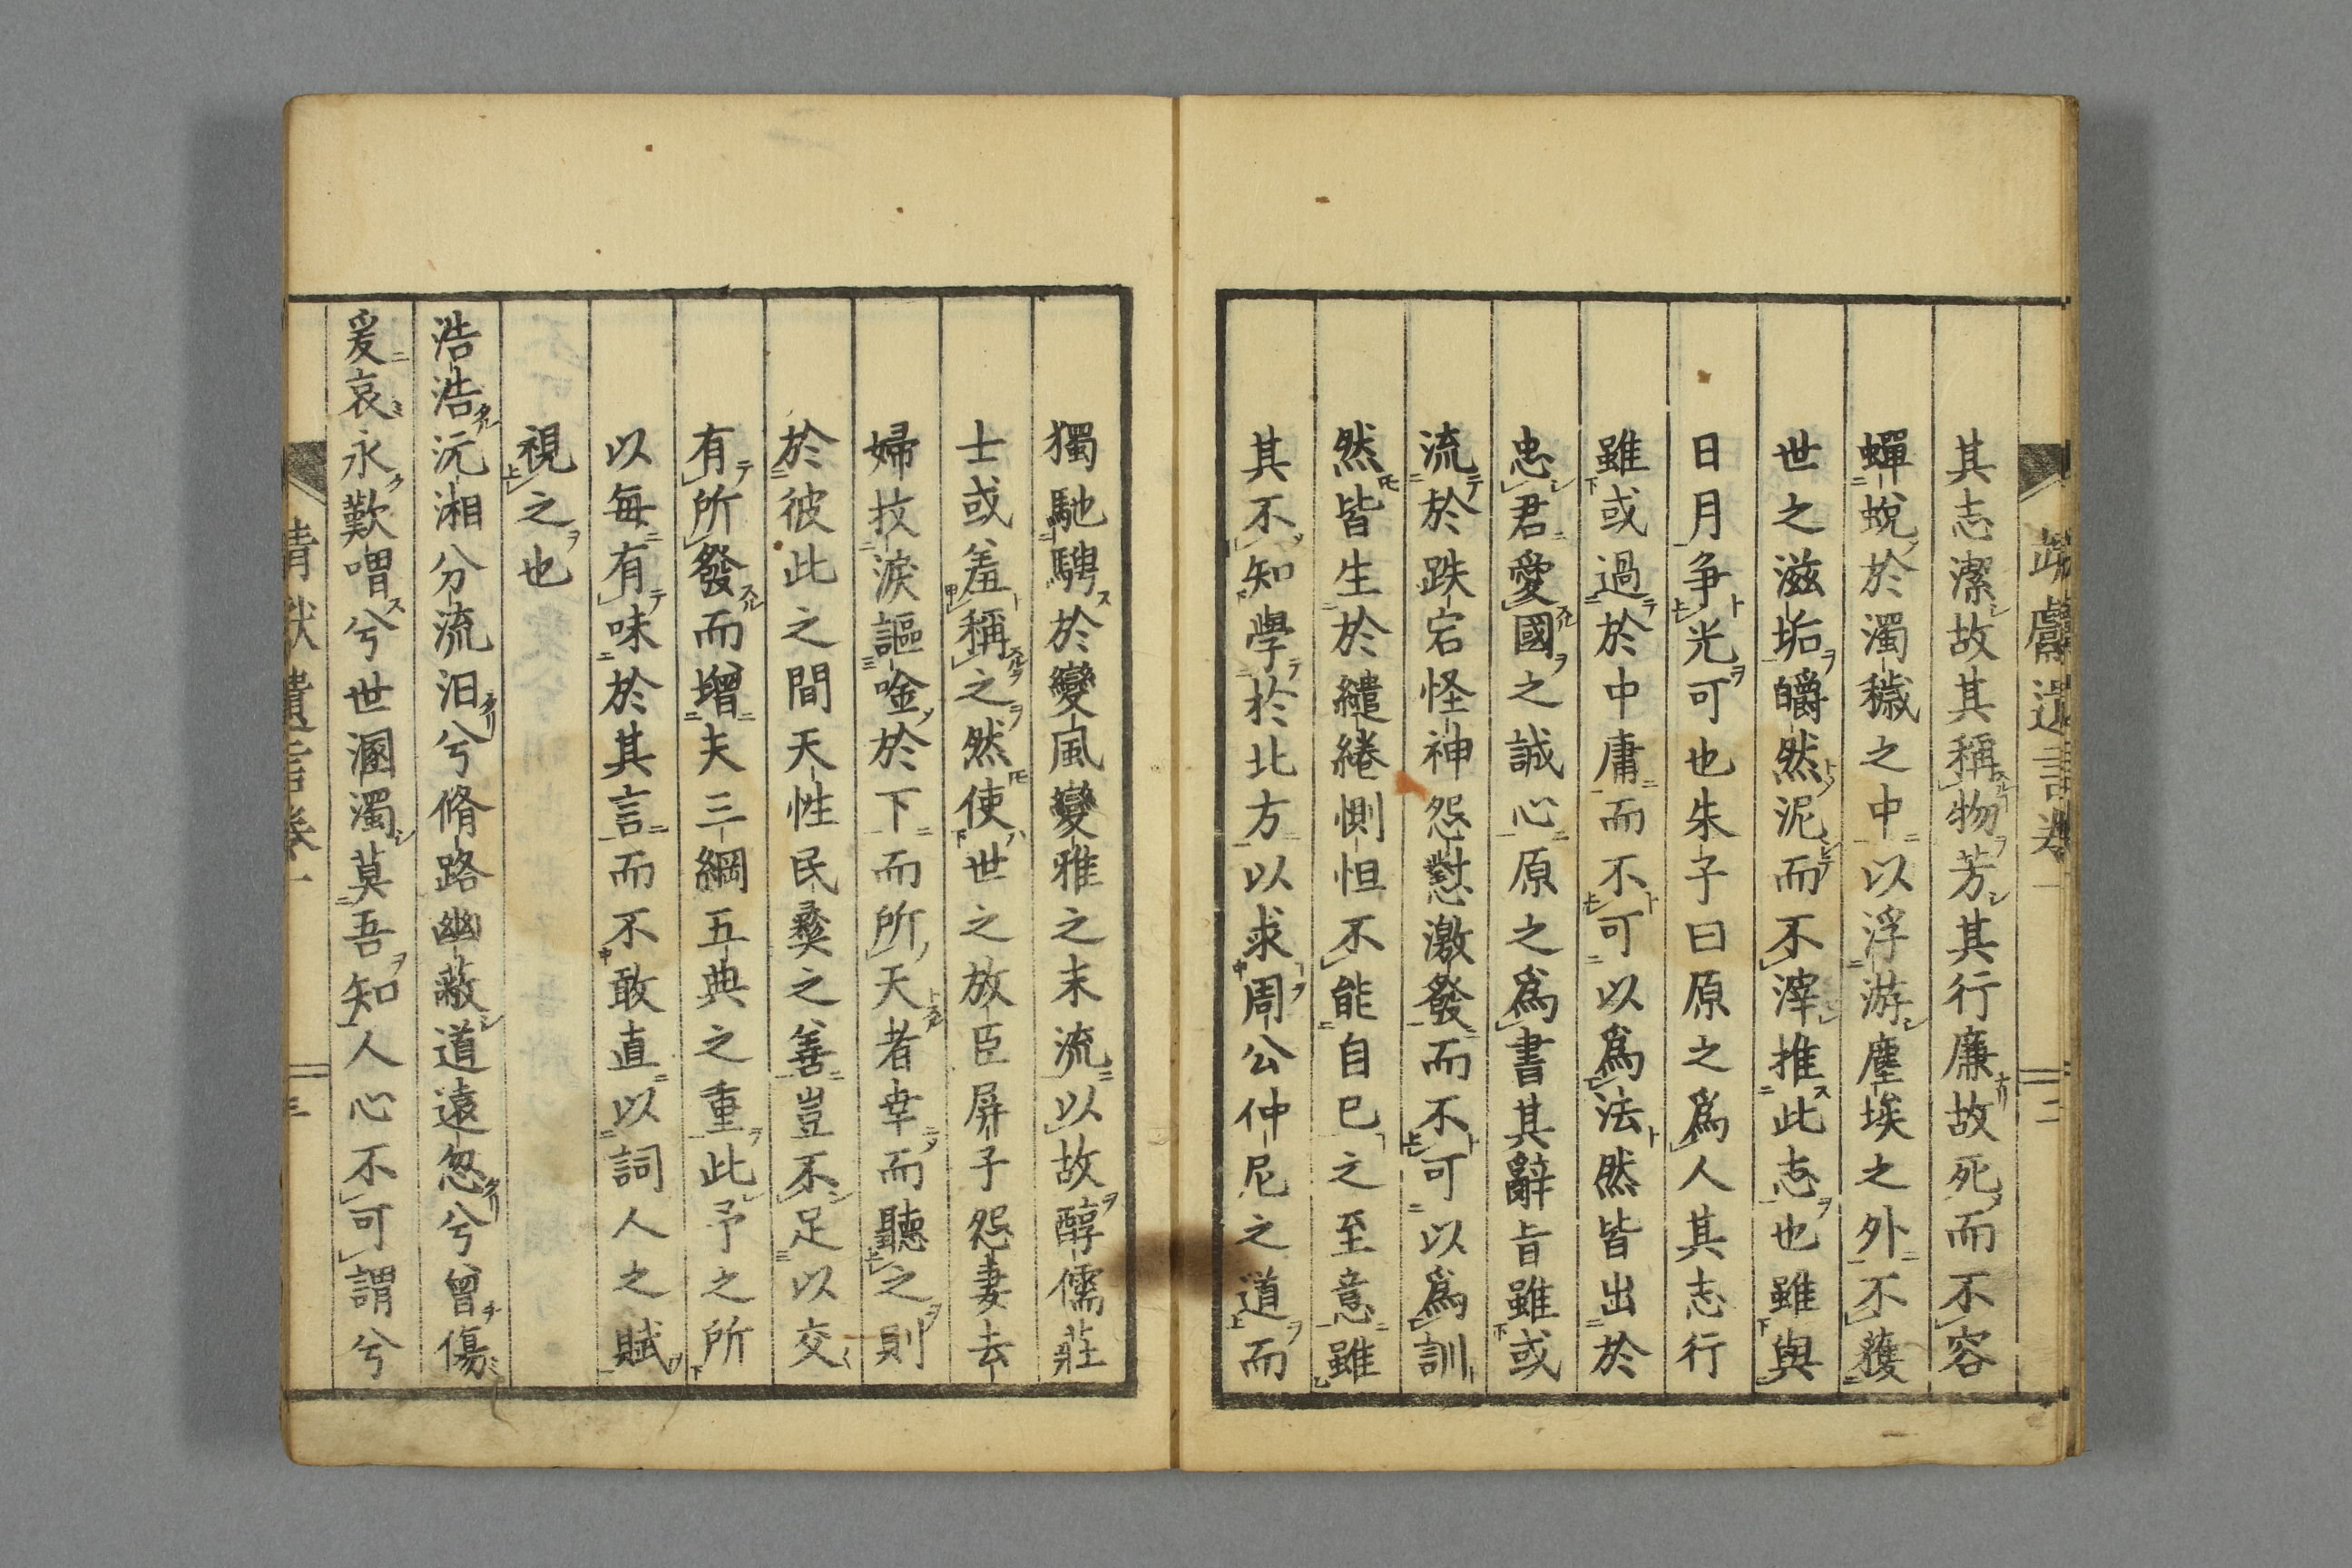 其志潔故其稱物芳其行廉故死而不容
蟬蛻於濁穢之中以浮游塵埃之外不獲
世之滋垢皭然泥而不滓推此志也雖與
日月争光可也朱子曰原之爲人其志行
雖或過於中庸而不可以爲法然皆出於
忠君愛國之誠心原之爲書其辭旨雖或
流於跌宕怪神怨懟激發而不可以爲訓
然皆生於繾綣惻怛不能自已之至意雖
其不知學於北方以求周公仲尼之道而
獨馳騁於變風變雅之末流以故醇儒莊
士或羞稱之然使世之放臣屏子怨妻去
婦抆淚謳唫於下而所天者幸而聽之則
於彼此之間天性民彛之善豈不足以交
有所發而增夫三綱五典之重此予之所
以每有味於其言而不敢直以詞人之賦
視之也
浩浩沅湘分流汨兮脩路幽蔽道遠忽兮曾傷
爰哀永歎喟兮世溷濁莫吾知人心不可謂兮
靖獻遺言卷一
三